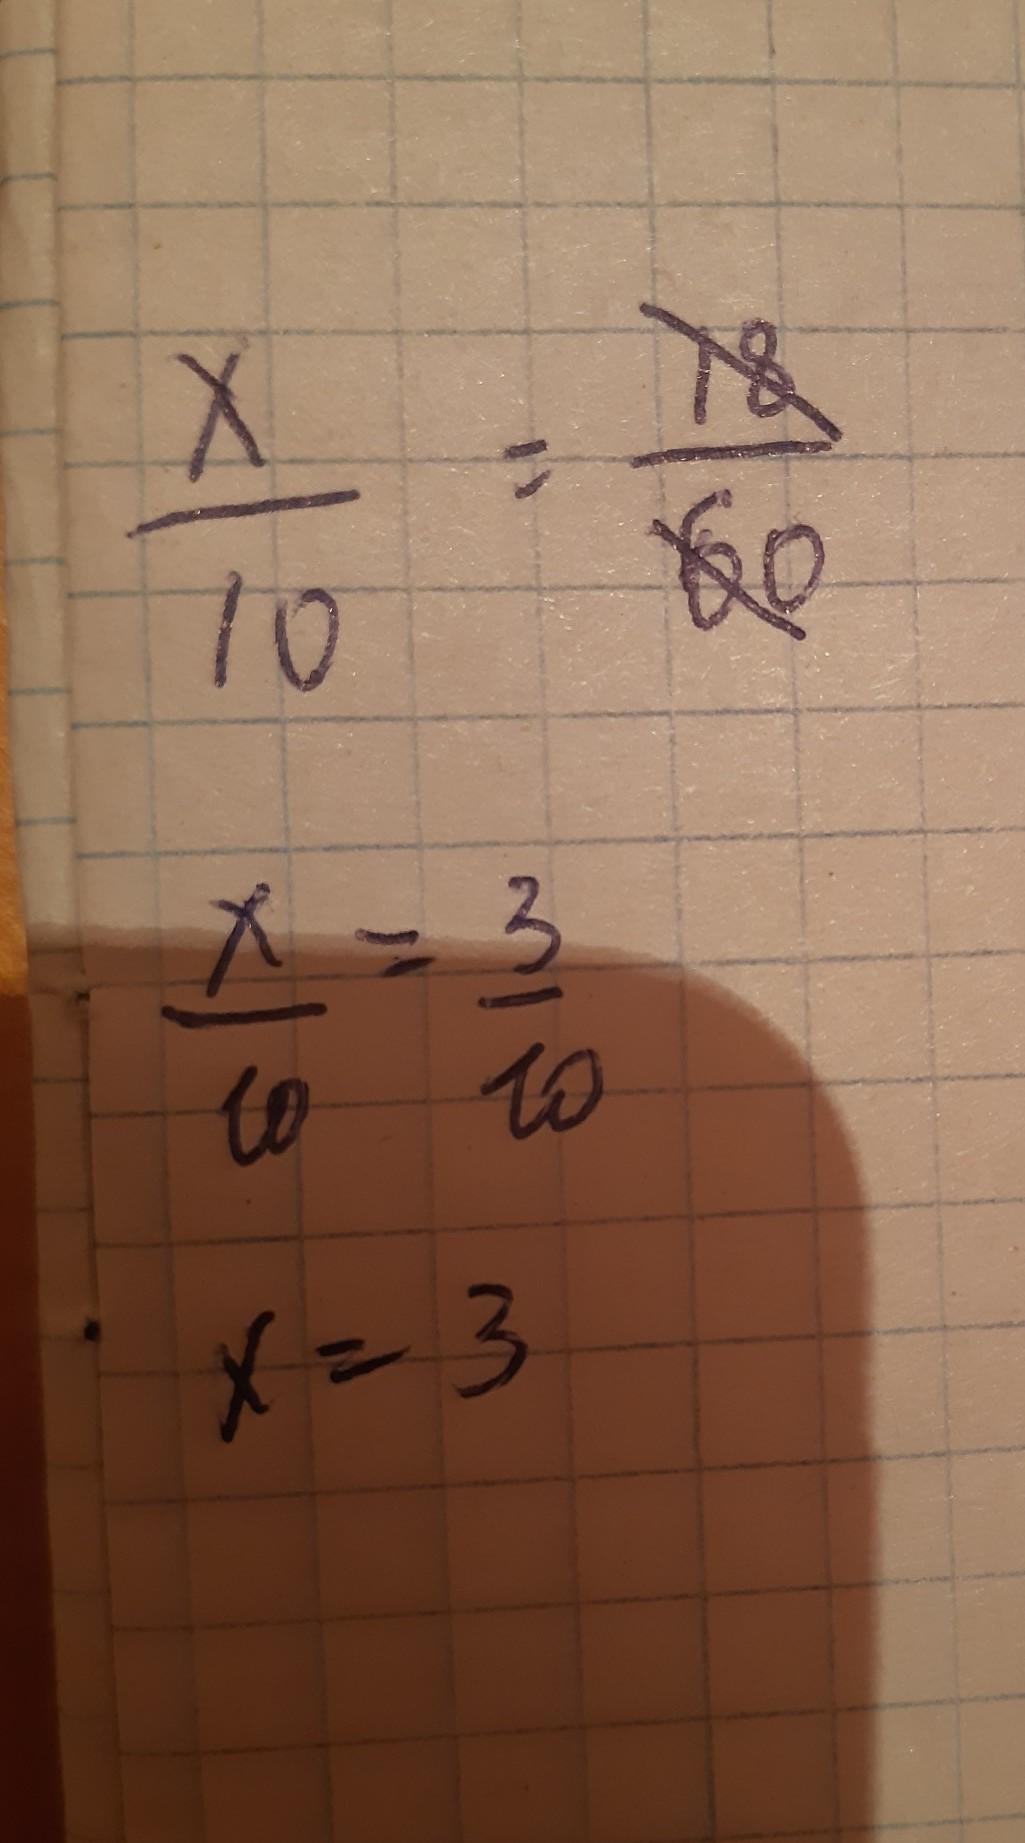 x/10 = 18/60
x/10 = 3/10
x = 3